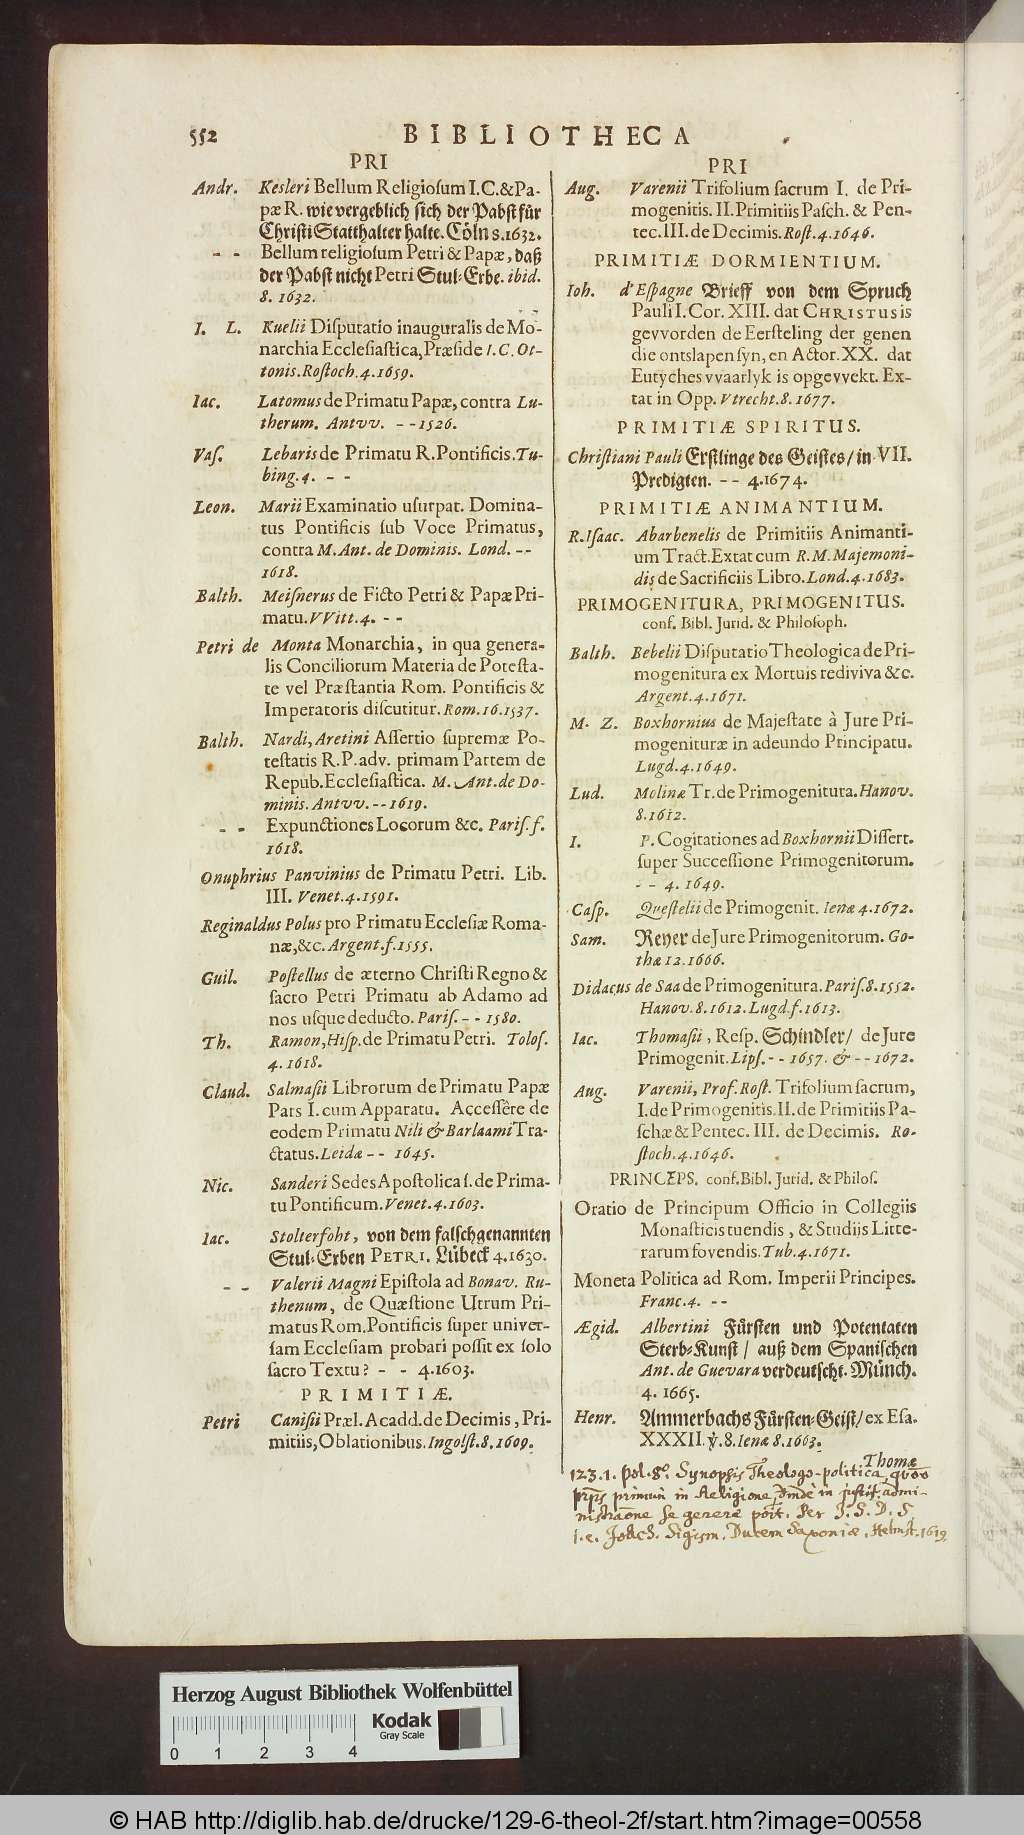 552
BIBLIOTHECA
PRI
Andr. Kesleri Bellum Religiosum I.C.&Pa-
pæ R. wie vergeblich sich der Pabst für
Christi Statthalter halte. Cöln 8.1632.
- - Bellum religiosum Petri & Papæ, daß
der Pabst nicht Petri Stul-Erbe. ibid.
8. 1632.
I. L. Kuelii Disputatio inauguralis de Mo-
narchia Ecclesiastica, Præside I. C. Ot-
tonis. Rostoch. 4. 1659.
Iac. Latomus de Primatu Papæ, contra Lu-
therum. Antvv. - - 1526.
Vas. Lebaris de Primatu R. Pontificis. Tu-
bing. 4. - -
Leon. Marii Examinatio usurpat. Domina-
tus Pontificis sub Voce Primatus,
contra M. Ant. de Dominis. Lond. - -
1618.
Balth. Meisnerus de Ficto Petri & Papæ Pri-
matu. VVitt. 4. - -
Petri de Monta Monarchia, in qua genera-
lis Conciliorum Materia de Potesta-
te vel Præstantia Rom. Pontificis &
Imperatoris discutitur. Rom. 16. 1537.
Balth. Nardi, Aretini Assertio supremæ Po-
testatis R. P. adv. primam Partem de
Repub. Ecclesiastica. M. Ant. de Do-
minis. Antvv. - - 1619.
- - Expunctiones Locorum &c. Paris. f.
1618.
Onuphrius Panvinius de Primatu Petri. Lib.
III. Venet. 4. 1591.
Reginaldus Polus pro Primatu Ecclesiæ Roma-
næ, &c. Argent. f. 1555.
Guil. Postellus de æterno Christi Regno &
sacro Petri Primatu ab Adamo ad
nos usque deducto. Paris. - - 1580.
Th. Ramon, Hisp. de Primatu Petri. Tolos.
4. 1618.
Claud. Salmasii Librorum de Primatu Papæ
Pars I. cum Apparatu. Accessêre de
eodem Primatu Nili & Barlaami Tra-
ctatus. Leidæ - - 1645.
Nic. Sanderi Sedes Apostolica s. de Prima-
tu Pontificum. Venet. 4. 1603.
Iac. Stolterfoht, von dem falschgenannten
Stul-Erben PETRI. Lübeck 4. 1630.
- - Valerii Magni Epistola ad Bonav. Ru-
thenum, de Quæstione Utrum Pri-
matus Rom. Pontificis super univer-
sam Ecclesiam probari possit ex solo
sacro Textu? - - 4. 1603.
PRIMITIÆ.
Petri Canisii Præl. Acadd. de Decimis, Pri-
mitiis, Oblationibus. Ingolst. 8. 1609.
PRI
Aug. Varenii Trifolium sacrum I. de Pri-
mogenitis. II. Primitiis Pasch. & Pen-
tec. III. de Decimis. Rost. 4. 1646.
PRIMITIÆ DORMIENTIUM.
Ioh. d'Espagne Brieff von dem Spruch
Pauli I. Cor. XIII. dat CHRISTUS is
gevvorden de Eersteling der genen
die ontslapen syn, en Actor. XX. dat
Eutyches vvaarlyk is opgevvekt. Ex-
tat in Opp. Vtrecht. 8. 1677.
PRIMITIÆ SPIRITUS.
Christiani Pauli Erstlinge des Geistes / in VII.
Predigten. - - 4. 1674.
PRIMITIÆ ANIMANTIUM.
R. Isaac. Abarbenelis de Primitiis Animanti-
um Tract. Extat cum R. M. Majemoni-
dis de Sacrificiis Libro. Lond. 4. 1683.
PRIMOGENITURA, PRIMOGENITUS.
conf. Bibl. Jurid. & Philosoph.
Balth. Bebelii Disputatio Theologica de Pri-
mogenitura ex Mortuis rediviva &c.
Argent. 4. 1671.
M. Z. Boxhornius de Majestate à Jure Pri-
mogenituræ in adeundo Principatu.
Lugd. 4. 1649.
Lud. Molinæ Tr. de Primogenitura. Hanov.
8. 1612.
I. P. Cogitationes ad Boxhornii Dissert.
super Successione Primogenitorum.
- - 4. 1649.
Casp. Questelii de Primogenit. Ienæ 4. 1672.
Sam. Reyer de Jure Primogenitorum. Go-
thæ 12. 1666.
Didacus de Saa de Primogenitura. Paris. 8. 1552.
Hanov. 8. 1612. Lugd. f. 1613.
Iac. Thomasii, Resp. Schindler / de Jure
Primogenit. Lips. - - 1657. & - - 1672.
Aug. Varenii, Prof. Rost. Trifolium sacrum,
I. de Primogenitis. II. de Primitiis Pa-
schæ & Pentec. III. de Decimis. Ro-
stoch. 4. 1646.
PRINCEPS. conf. Bibl. Jurid. & Philos.
Oratio de Principum Officio in Collegiis
Monasticis tuendis, & Studijs Litte-
rarum fovendis. Tub. 4. 1671.
Moneta Politica ad Rom. Imperii Principes.
Franc. 4. - -
Ægid. Albertini Fürsten und Potentaten
Sterb-Kunst / auß dem Spanischen
Ant. de Guevara verdeutscht. Münch.
4. 1665.
Henr. Ammerbachs Fürsten-Geist / ex Esa.
XXXII. ℣. 8. Ienæ 8. 1663.
Thomæ
123.1. Pol. 8º. Synopsis Theologo-politica, quo
primum in Religione, deinde in justit. admi-
nistraone se gerere Per J. S. D. S.
i.e. Joach. Sigism. Ducem Saxoniæ, Helmst. 1619
Herzog August Bibliothek Wolfenbüttel
Kodak
Gray Scale
0 1 2 3 4
© HAB http://diglib.hab.de/drucke/129-6-theol-2f/start.htm?image=00558